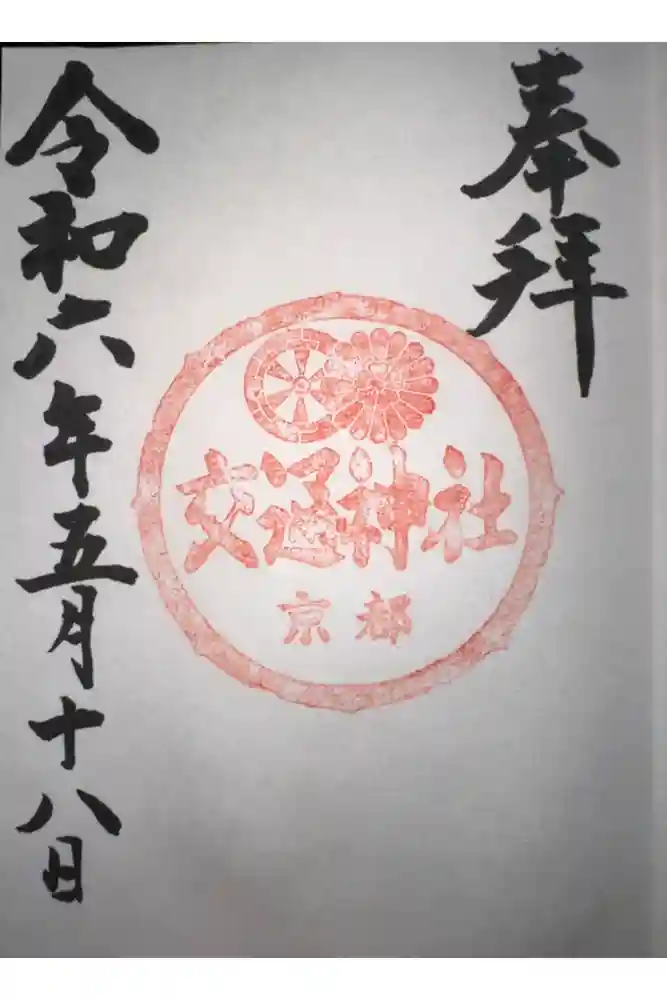 奉拝
交通神社
京都
令和六年五月十八日